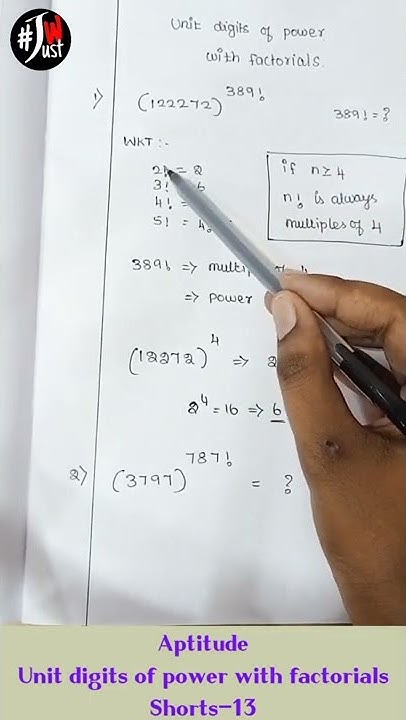 #JW
ust
Unit digits of power
with factorials.
1) (122272)^389!
389! = ?
WKT :-
2! = 2
3! = 6
4! =
5! = 4.
if n ≥ 4
n! is always
multiples of 4
389! => multip 4
=> power
(12272)^4 => 2
2^4 = 16 => 6
2) (3797)^787! = ?
Aptitude
Unit digits of power with factorials
Shorts-13